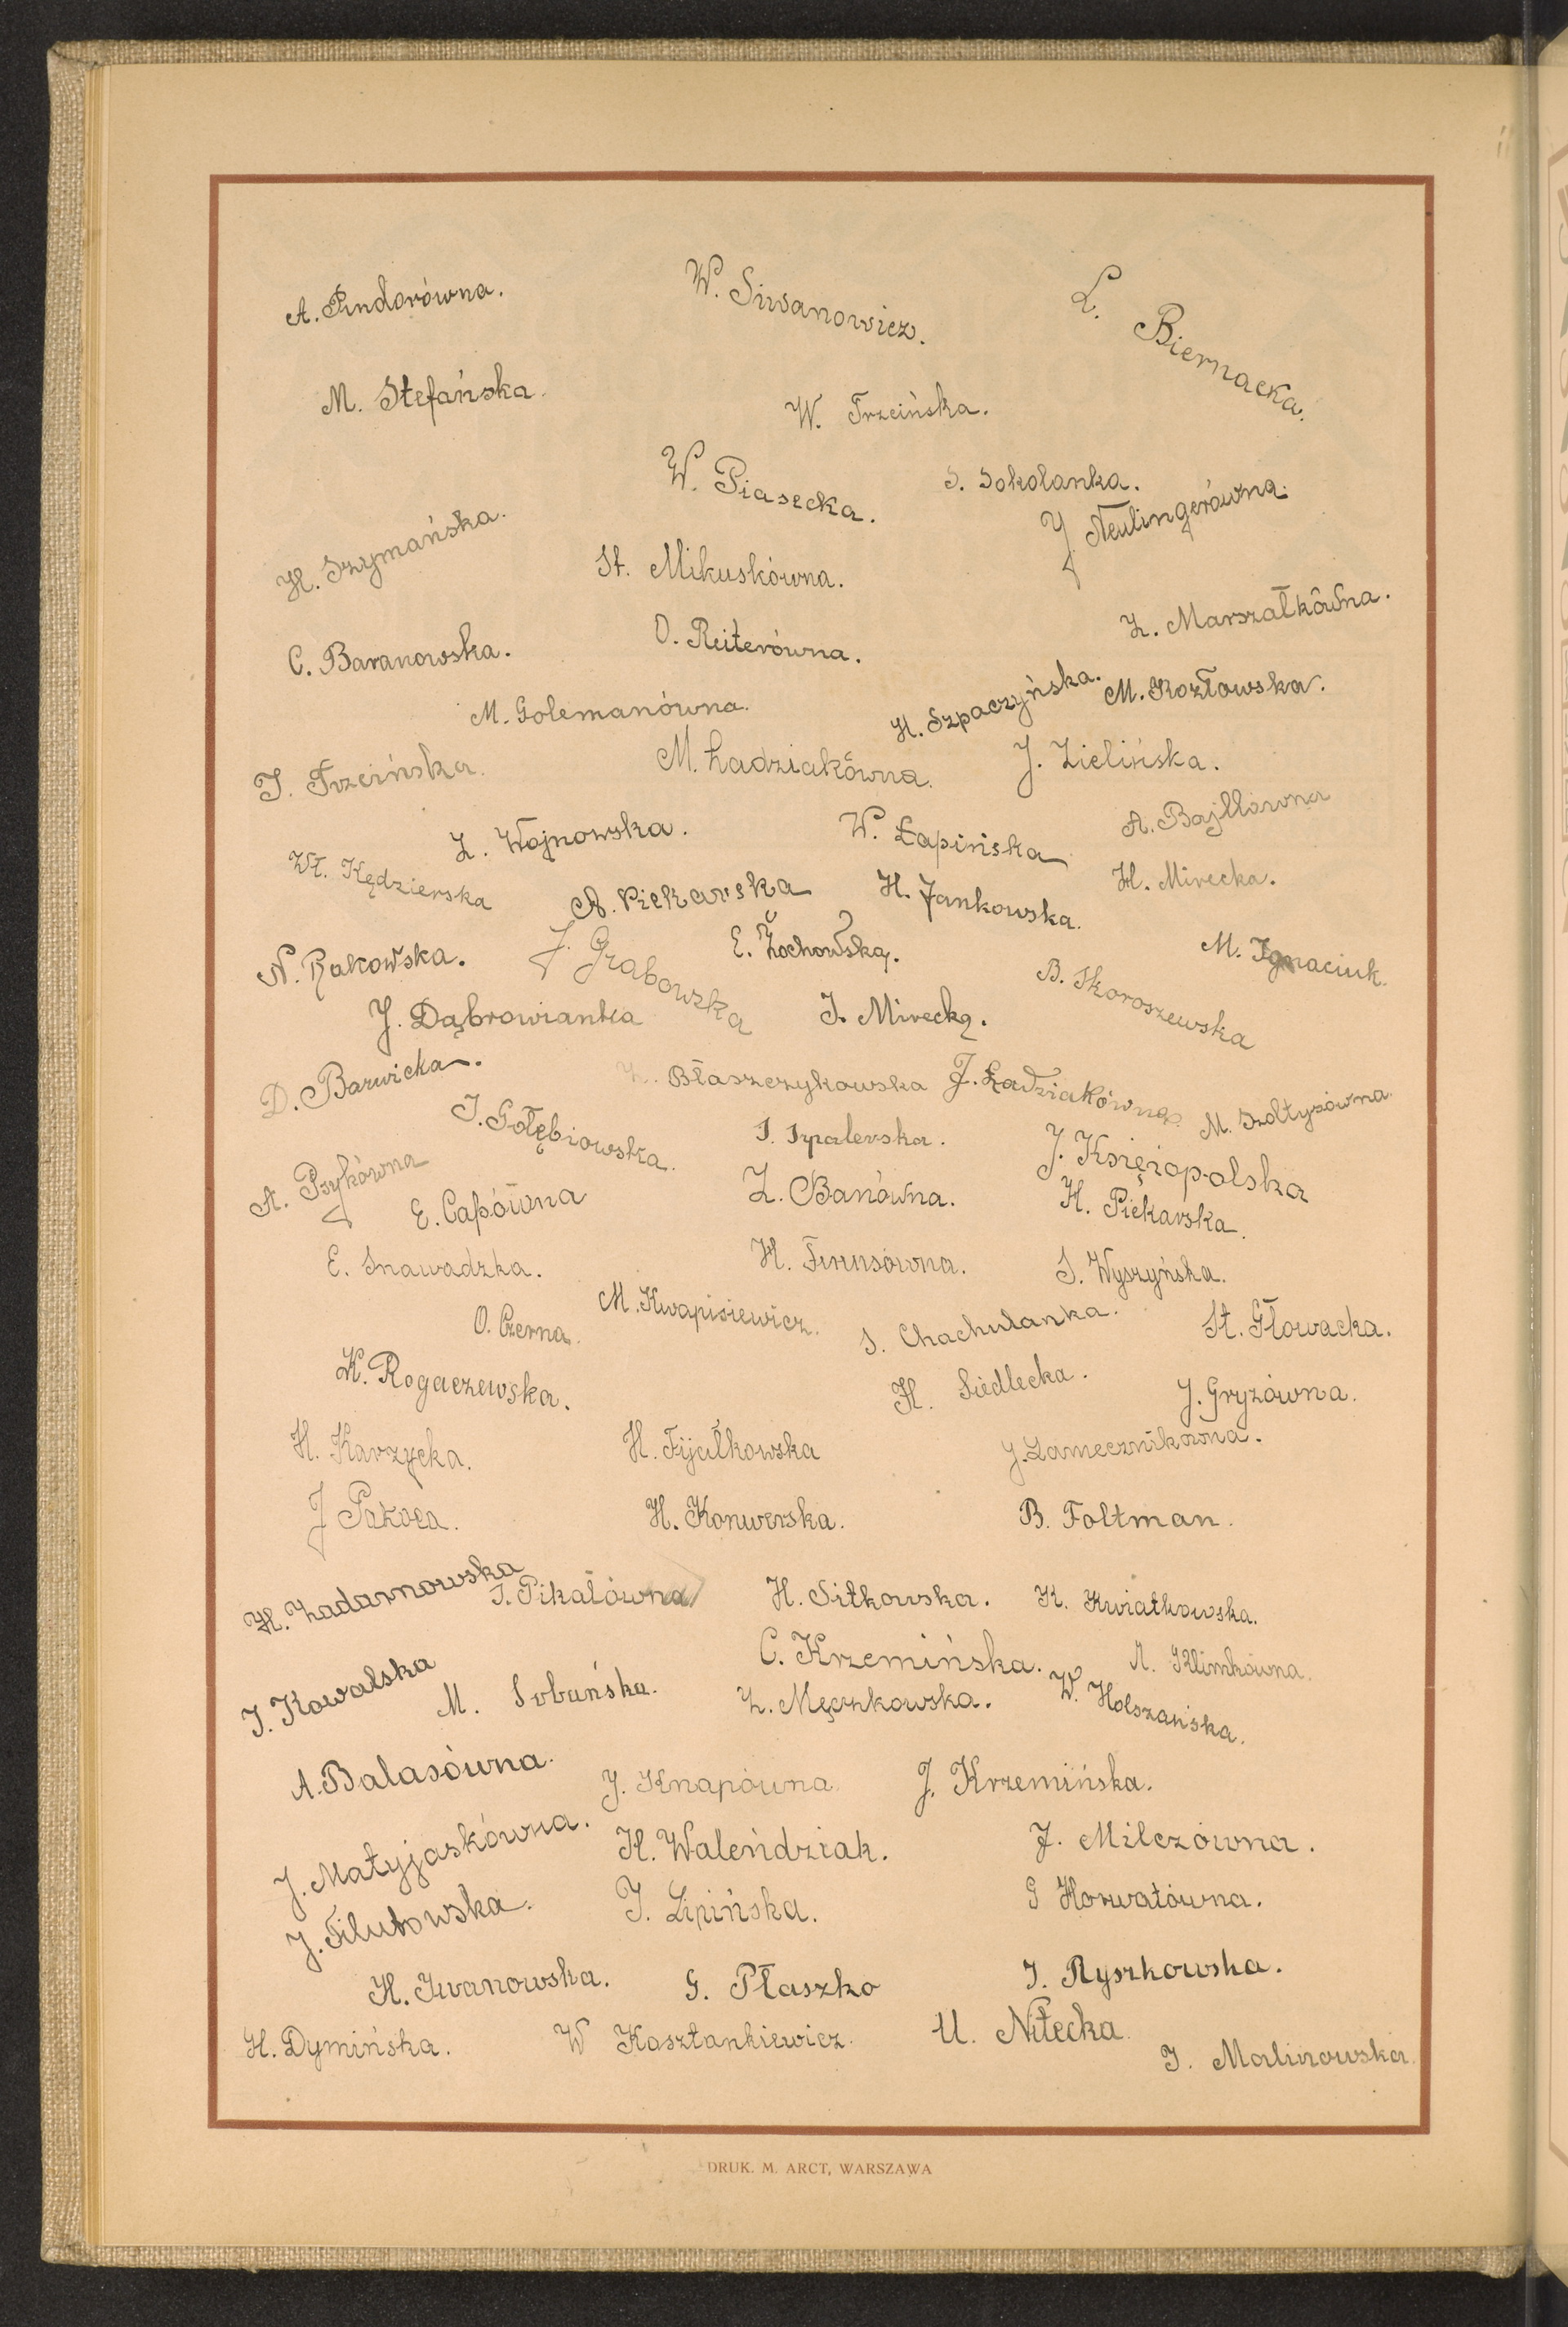 A. Pindorówna.
W. Siwanowicz.
L. Biernacka.
M. Stefańska.
W. Trzcińska.
W. Piasecka.
S. Sokolanka.
J. Neulingerówna.
H. Szymańska.
St. Mikuskówna.
Z. Marszałkówna.
C. Baranowska.
O. Reiterówna.
H. Szpaczyńska.
M. Kozłowska.
M. Golemanówna.
J. Trzcińska.
M. Ładziakówna.
J. Zielińska.
Z. Wojnowska.
W. Łapińska
A. Bajllówna
Wł. Kędzierska
A. Piekarska
H. Jankowska.
H. Mirecka.
N. Rakowska.
J. Grabowska
E. Żochowska.
M. Ignaciuk.
B. Skoroszewska
J. Dąbrowianka
J. Mirecka.
D. Barwicka.
Błaszczykowska
J. Ładziakówna.
M. Szołtysówna.
J. Gołębiowska.
J. Księżopolska
A. Psykówna
E. Capówna
Z. Banówna.
H. Piekarska.
E. Snawadzka.
H.
S. Wyszyńska.
O. Czerna.
M. Kwapisiewicz.
S. Chachulanka.
St. Głowacka.
K. Rogaczewska.
H. Siedlecka.
J. Gryzówna.
H. Karzycka.
H. Fijałkowska
J. Zamecznikówna.
J.
H. Konwerska.
B. Foltman.
H. Zadarnowska
J. Pikalówna
H. Sitkowska.
K. Kwiatkowska.
C. Krzemińska.
A. Klimkówna.
J. Kowalska
M. Sobańska.
Z. Męczkowska.
W. Holszańska.
A. Balasówna.
J. Knapówna.
J. Krzemińska.
J. Matyjaskówna.
H. Waleńdziak.
J. Milczówna.
J. Filutowska.
J. Lipińska.
G Horwatówna.
H. Iwanowska.
G. Płaszko
J. Ryszkowska.
H. Dymińska.
W Kasztankiewicz.
U. Nitecka.
J. Malinowska.
DRUK. M. ARCT, WARSZAWA